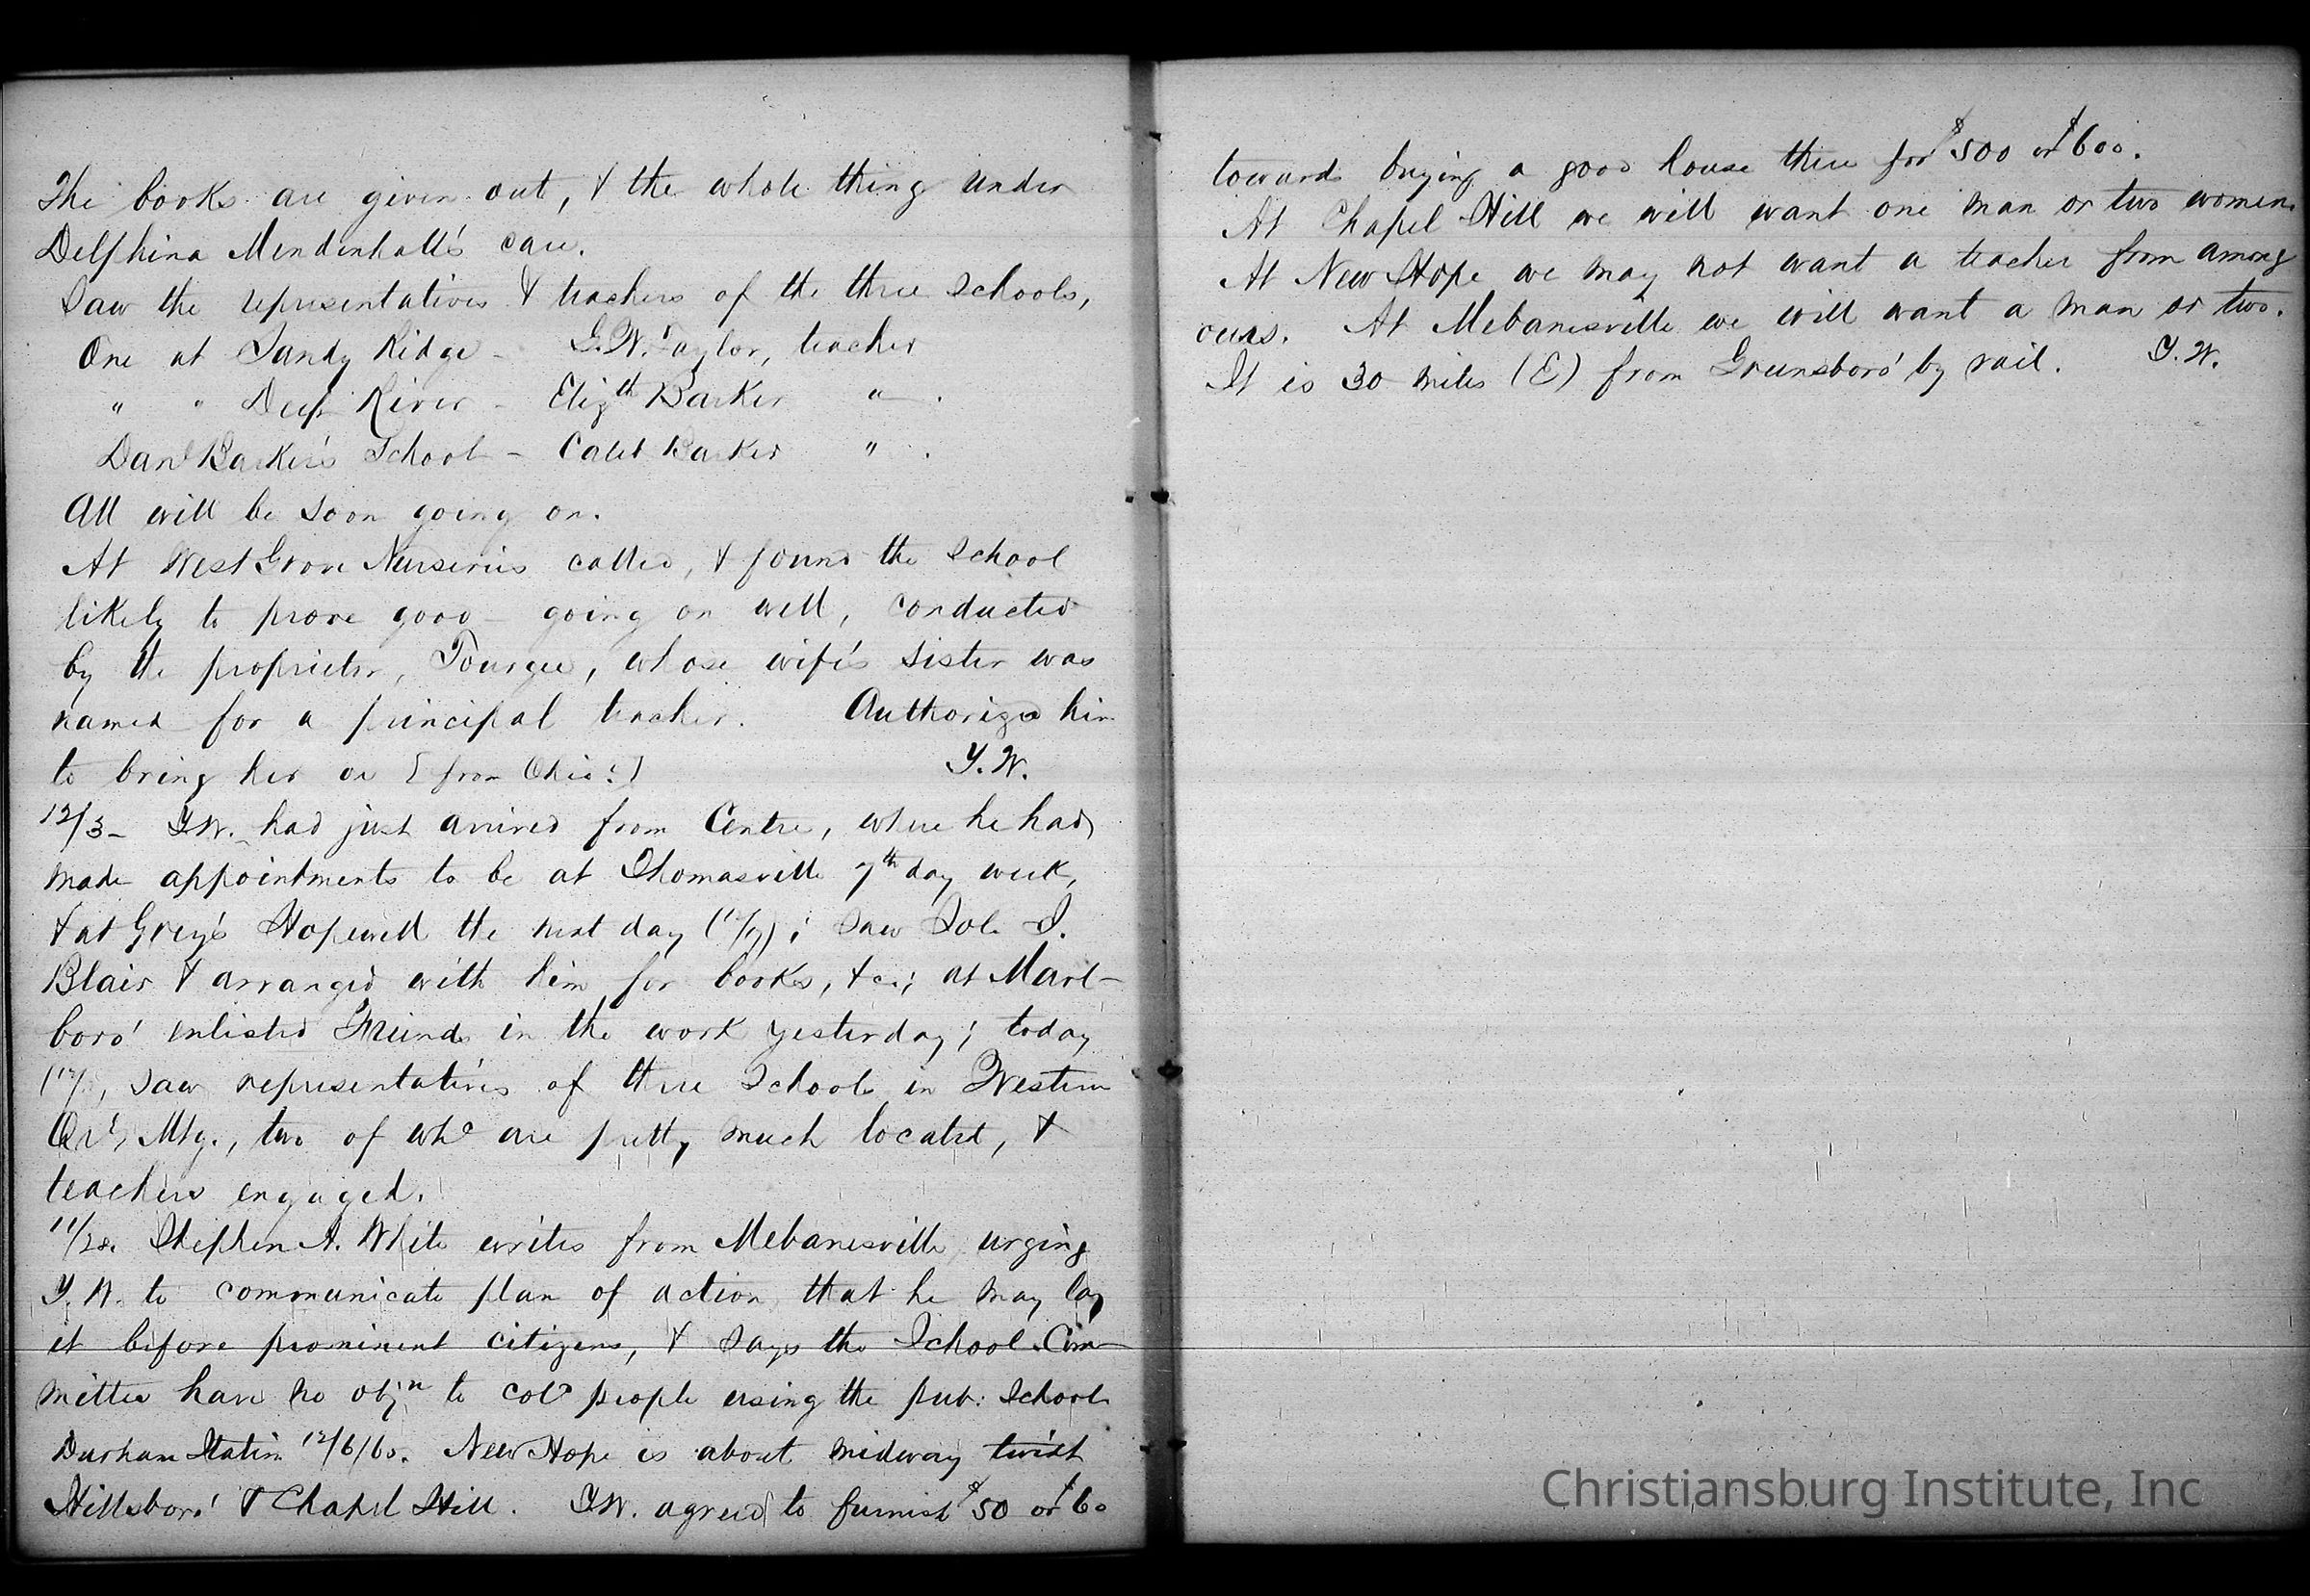 The books are given out, & the whole thing under
Delphina Mendenhall's care.
Saw the representatives & teachers of the three Schools,
One at Sandy Ridge - G.W. Taylor, teacher
" " Deep River - Elizth Barker " .
Danl Barker's School - Caleb Barker " .
All will be soon going on.
At West Grove Nurseries called, & found the School
likely to prove good - going on well, conducted
by the proprietor, Tourgee, whose wife's sister was
named for a principal teacher. Authorized him
to bring her on [from Ohio?]
Y.W.
12/3 - Y.W. had just arrived from Centre, where he had
made appointments to be at Thomasville 7th day week,
& at Grey's Hopewell the next day ( ); saw Sol. I.
Blair & arranged with him for books, &c.; at Marl-
boro' enlisted Friends in the work yesterday; today
saw representatives of three Schools in Western
Qr. Mtg., two of whc are pretty much located, &
teachers engaged.
11/28. Stephen A. White writes from Mebanesville urging
Y.W. to communicate plan of action that he may lay
it before prominent citizens, & says the School Com-
mittee have no objn to cold people using the pub: School
Durham Station 12/6/60. New Hope is about midway twixt
Hillsboro' & Chapel Hill. Y.W. agreed to furnish $50 or $60
towards buying a good house there for $500 or $600.
At Chapel Hill we will want one man or two women.
At New Hope we may not want a teacher from among
ours. At Mebanesville we will want a man or two.
It is 30 miles (E) from Greensboro' by rail. Y.W.
Christiansburg Institute, Inc